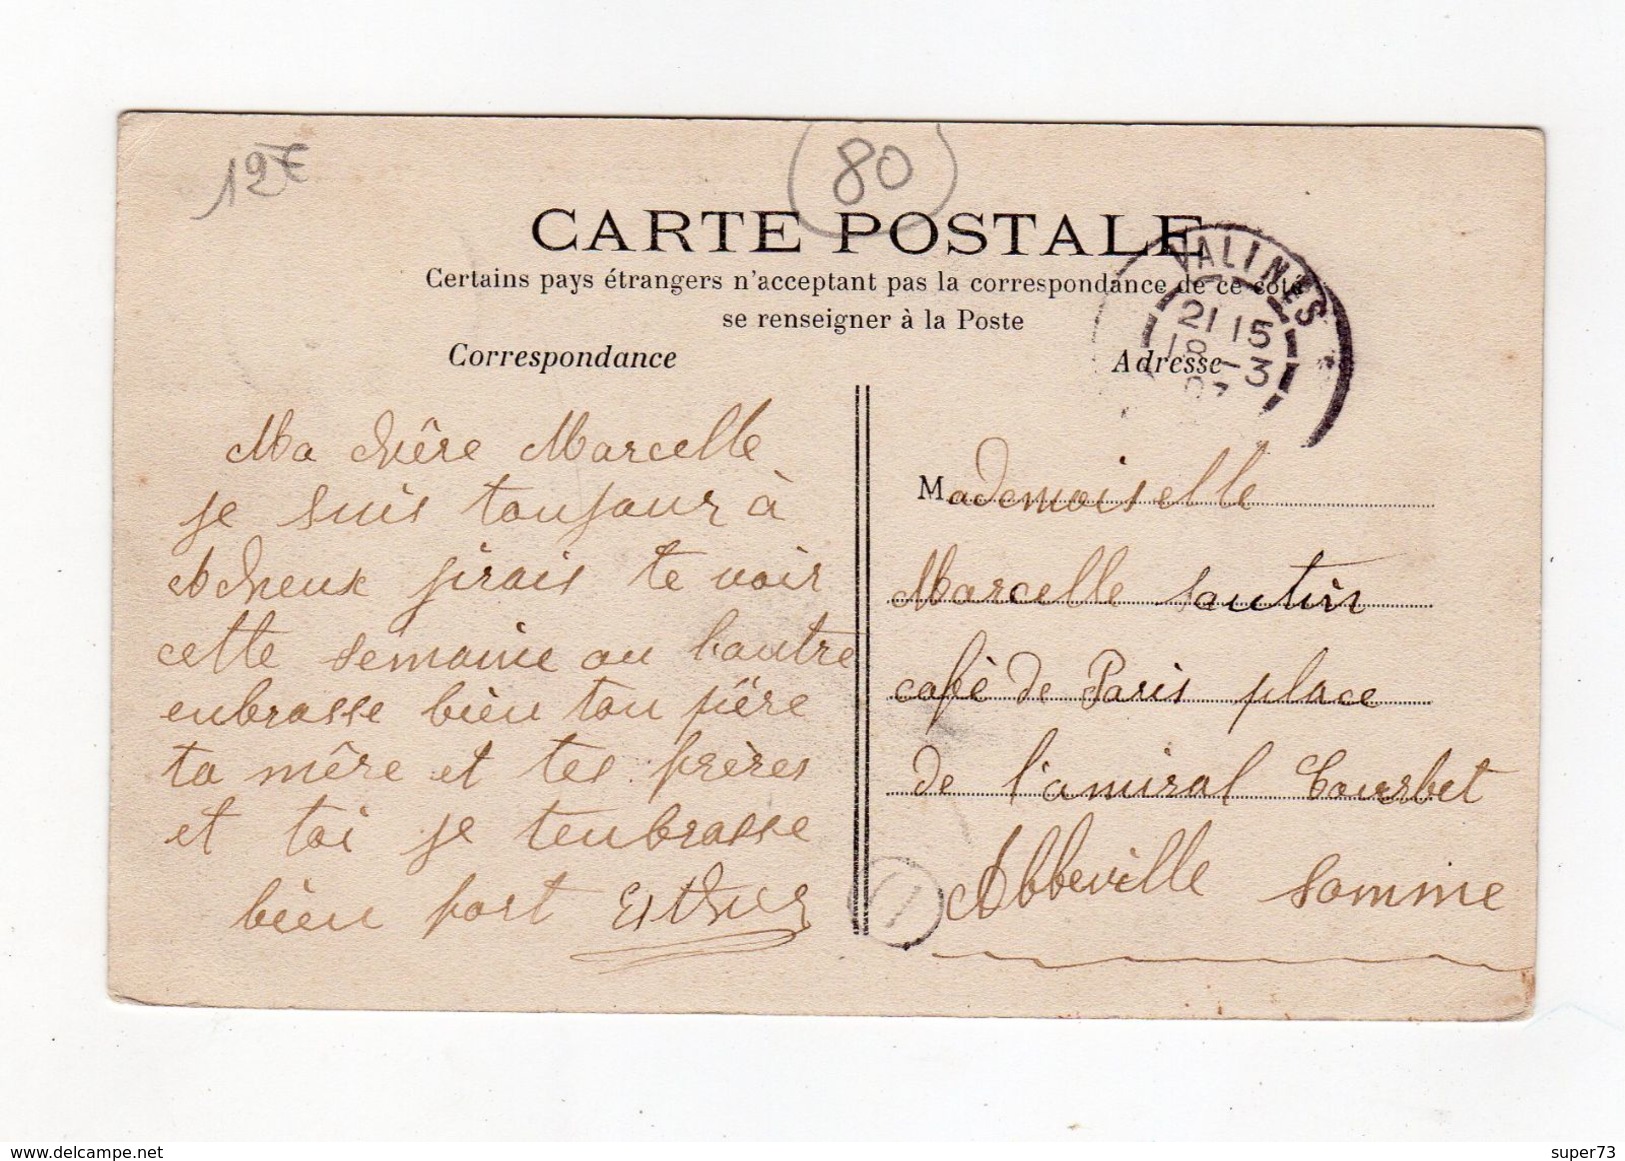 12€
80
CARTE POSTALE
Certains pays étrangers n'acceptant pas la correspondance de ce côté
se renseigner à la Poste
Correspondance
Adresse
VALINES
21 15
18 -3
07
Ma chère Marcelle
je suis toujour à
Acheux j'irais te voir
cette semaine ou l'autre
enbrasse bien ton père
ta mère et tes frères
et toi je tenbrasse
bien fort
Mademoiselle
Marcelle
café de Paris place
de l'amiral Courbet
Abbeville Somme
delcampe.net
super73